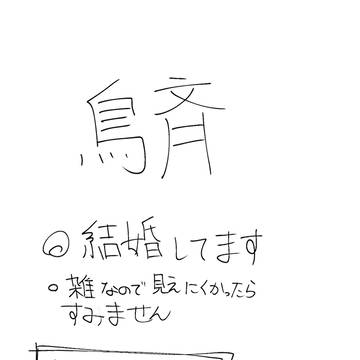 鳥斉
◎結婚してます
○雑なので見えにくかったら
すみません